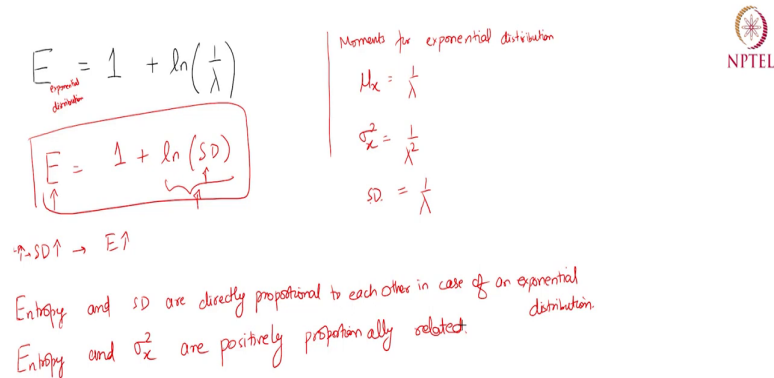 E exponential distribution = 1 + ln(1/λ)
E = 1 + ln(SD)
↑→SD↑ → E↑
Moments for exponential distribution
μx = 1/λ
σx² = 1/λ²
S.D. = 1/λ
Entropy and SD are directly proportional to each other in case of an exponential distribution.
Entropy and σx² are positively proportionally related.
NPTEL